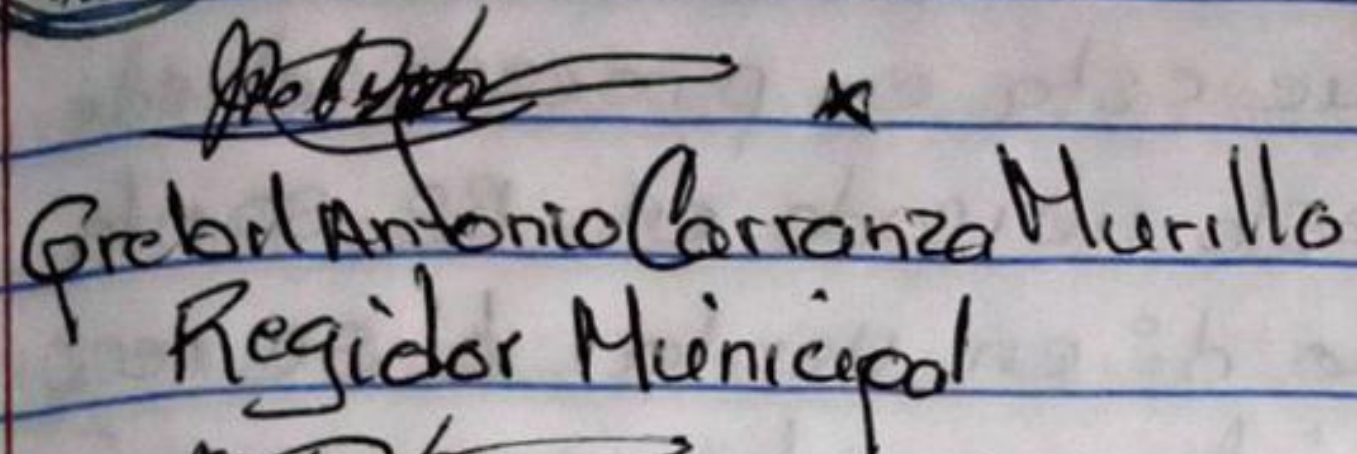 Grebil Antonio Carranza Murillo
Regidor Municipal